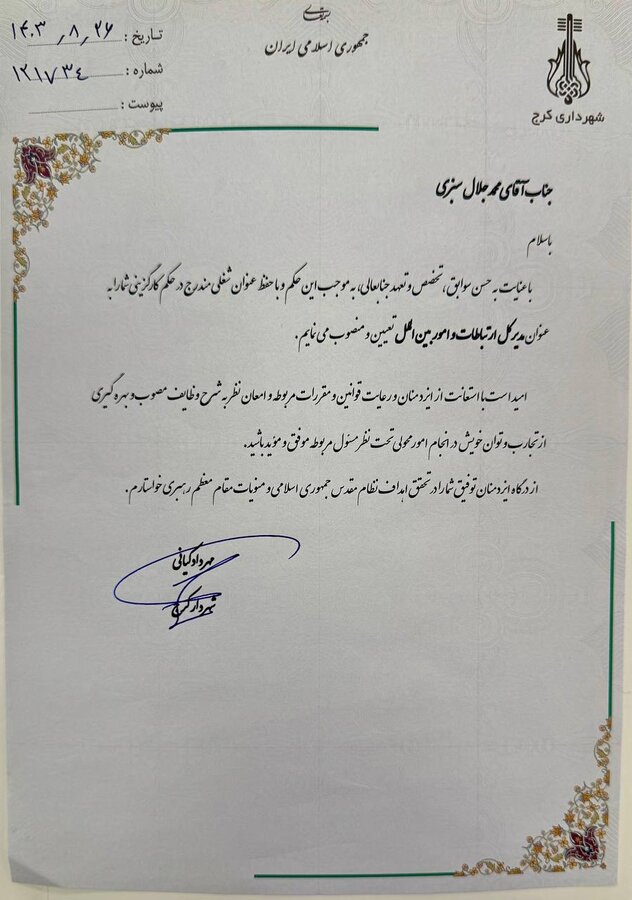 بسمه تعالی
جمهوری اسلامی ایران
شهرداری کرج
تاریخ : ۱۴۰۳٫۸٫۲۶
شماره : ۱۲۱۷۳۴
پیوست :
جناب آقای محمد جلال سبزی
با سلام
با عنایت به حسن سوابق، تخصص و تعهد جنابعالی، به موجب این حکم و با حفظ عنوان شغلی مندرج در حکم کارگزینی شما را به
عنوان مدیر کل ارتباطات و امور بین الملل تعیین و منصوب می نمایم.
امید است با استعانت از ایزد منان و رعایت قوانین و مقررات مربوطه و امعان نظر به شرح وظایف مصوب و بهره گیری
از تجارب و توان خویش در انجام امور محولی تحت نظر مسئول مربوطه موفق و مؤید باشید.
از درگاه ایزد منان توفیق شما را در تحقق اهداف نظام مقدس جمهوری اسلامی و منویات مقام معظم رهبری خواستارم.
مهرداد کیانی
شهردار کرج